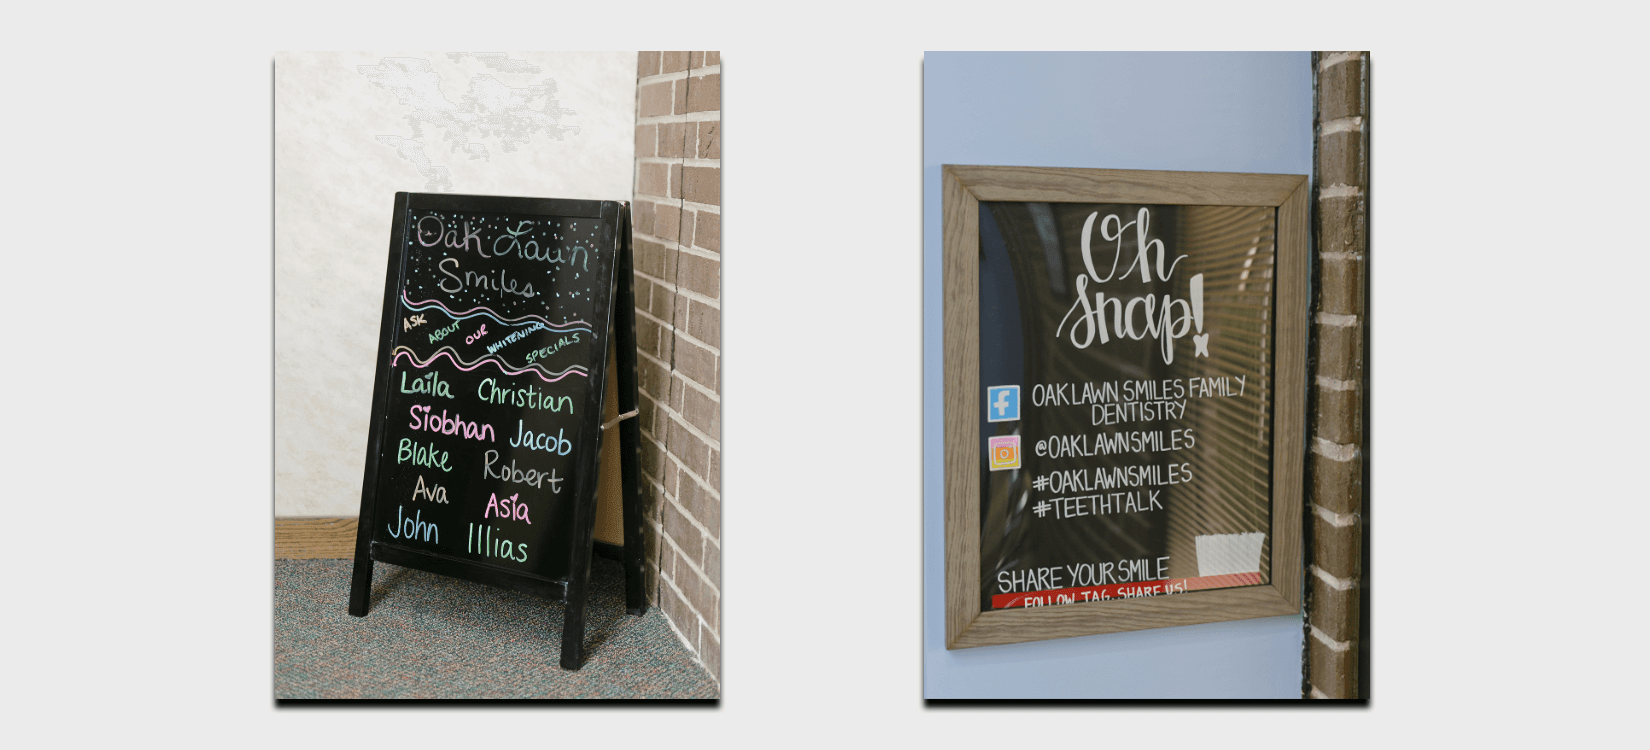 Oak Lawn
Smiles
ASK ABOUT OUR WHITENING SPECIALS
Laila Christian
Siobhan Jacob
Blake Robert
Ava Asia
John Illias
Oh
Snap!
OAK LAWN SMILES FAMILY
DENTISTRY
@OAKLAWNSMILES
#OAKLAWNSMILES
#TEETHTALK
SHARE YOUR SMILE
FOLLOW, TAG, SHARE US!